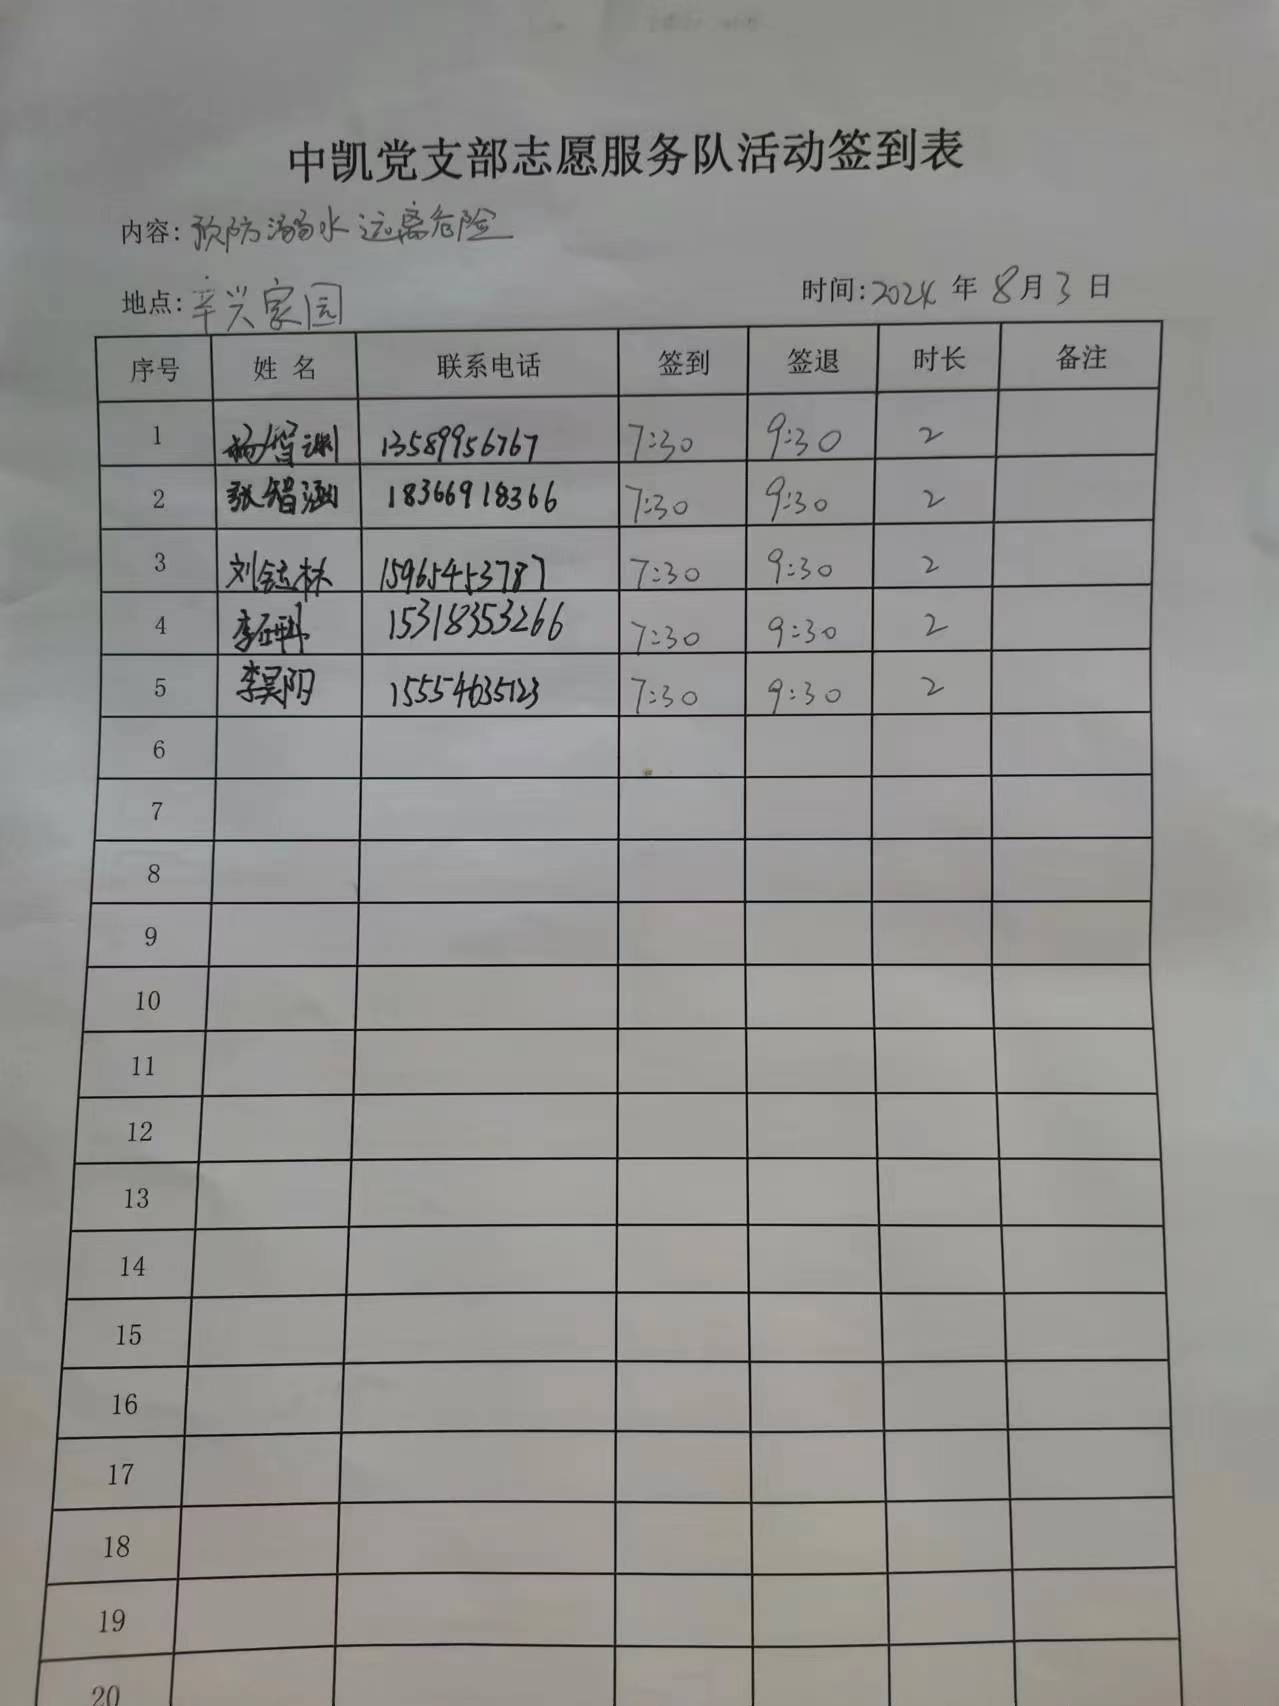 中凯党支部志愿服务队活动签到表
内容: 预防溺水 远离危险
地点: 辛兴家园 时间: 2024 年 8月 3 日
序号 姓 名 联系电话 签到 签退 时长 备注
1 杨智渊 13589956767 7:30 9:30 2
2 张智涵 18366918366 7:30 9:30 2
3 刘钰林 15965453787 7:30 9:30 2
4 15318353266 7:30 9:30 2
5 李昊阳 15554635123 7:30 9:30 2
6
7
8
9
10
11
12
13
14
15
16
17
18
19
20